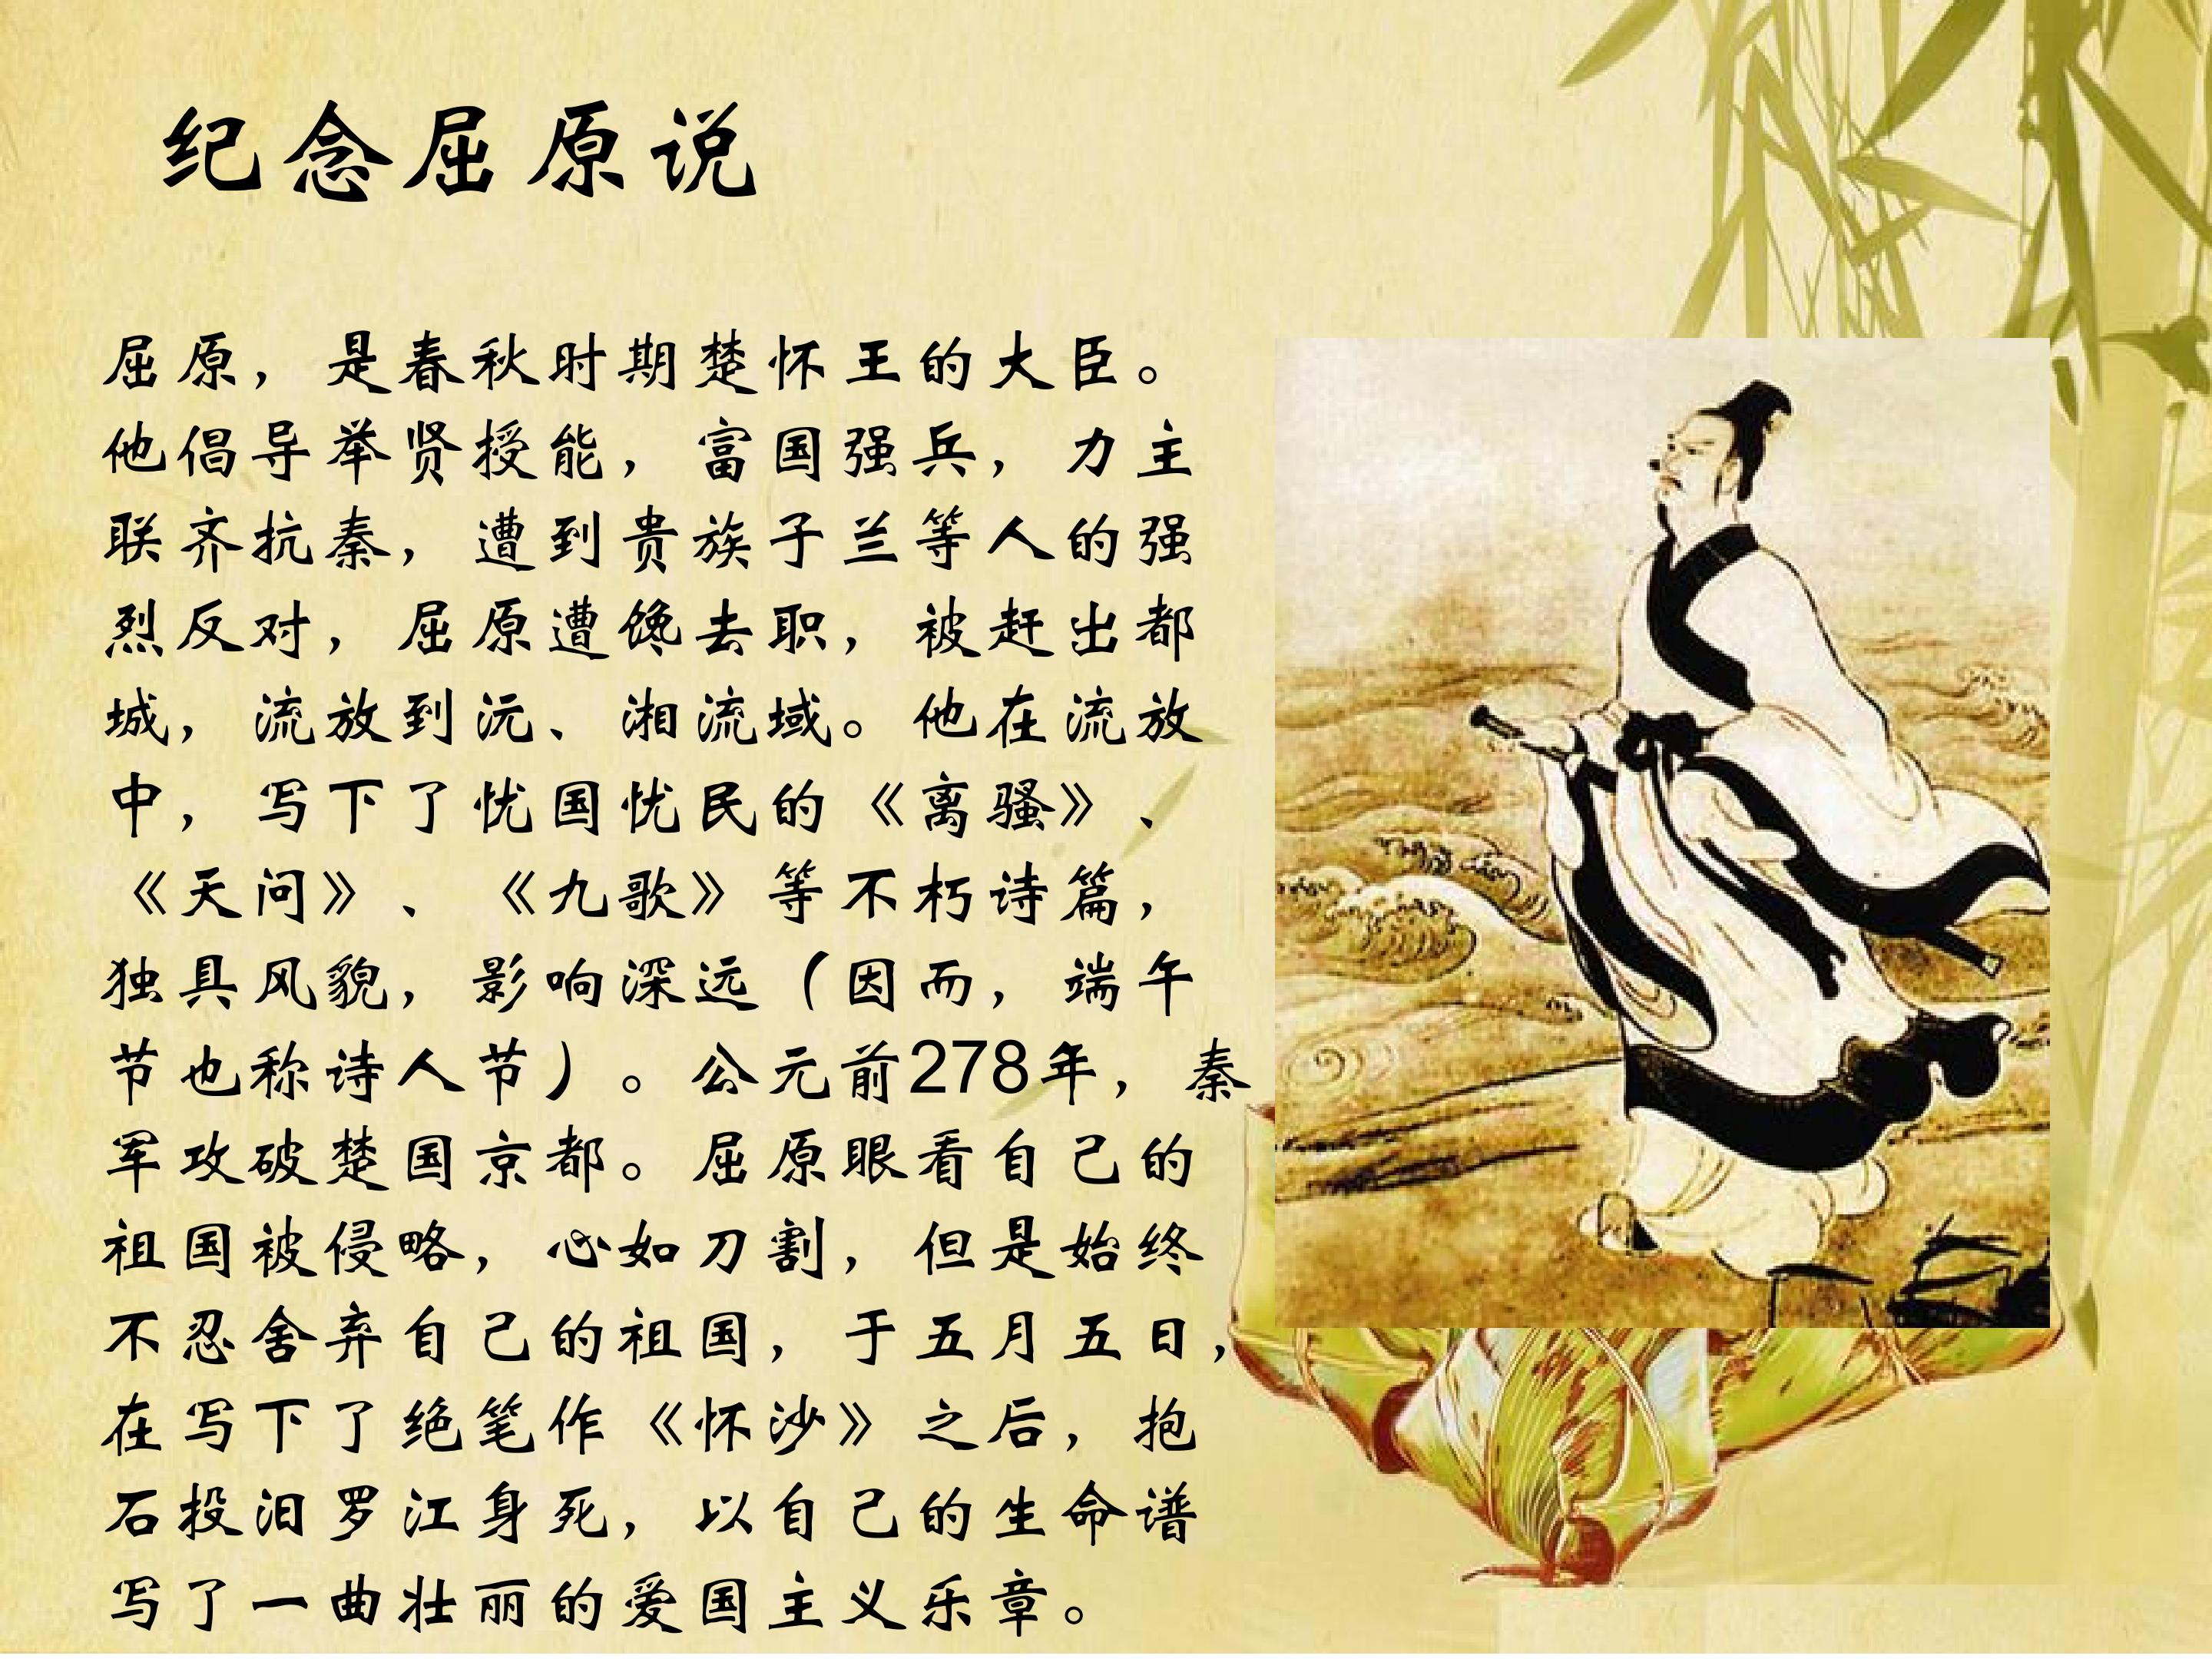 纪念屈原说
屈原，是春秋时期楚怀王的大臣。
他倡导举贤授能，富国强兵，力主
联齐抗秦，遭到贵族子兰等人的强
烈反对，屈原遭馋去职，被赶出都
城，流放到沅、湘流域。他在流放
中，写下了忧国忧民的《离骚》、
《天问》、《九歌》等不朽诗篇，
独具风貌，影响深远（因而，端午
节也称诗人节）。公元前278年，秦
军攻破楚国京都。屈原眼看自己的
祖国被侵略，心如刀割，但是始终
不忍舍弃自己的祖国，于五月五日，
在写下了绝笔作《怀沙》之后，抱
石投汨罗江身死，以自己的生命谱
写了一曲壮丽的爱国主义乐章。